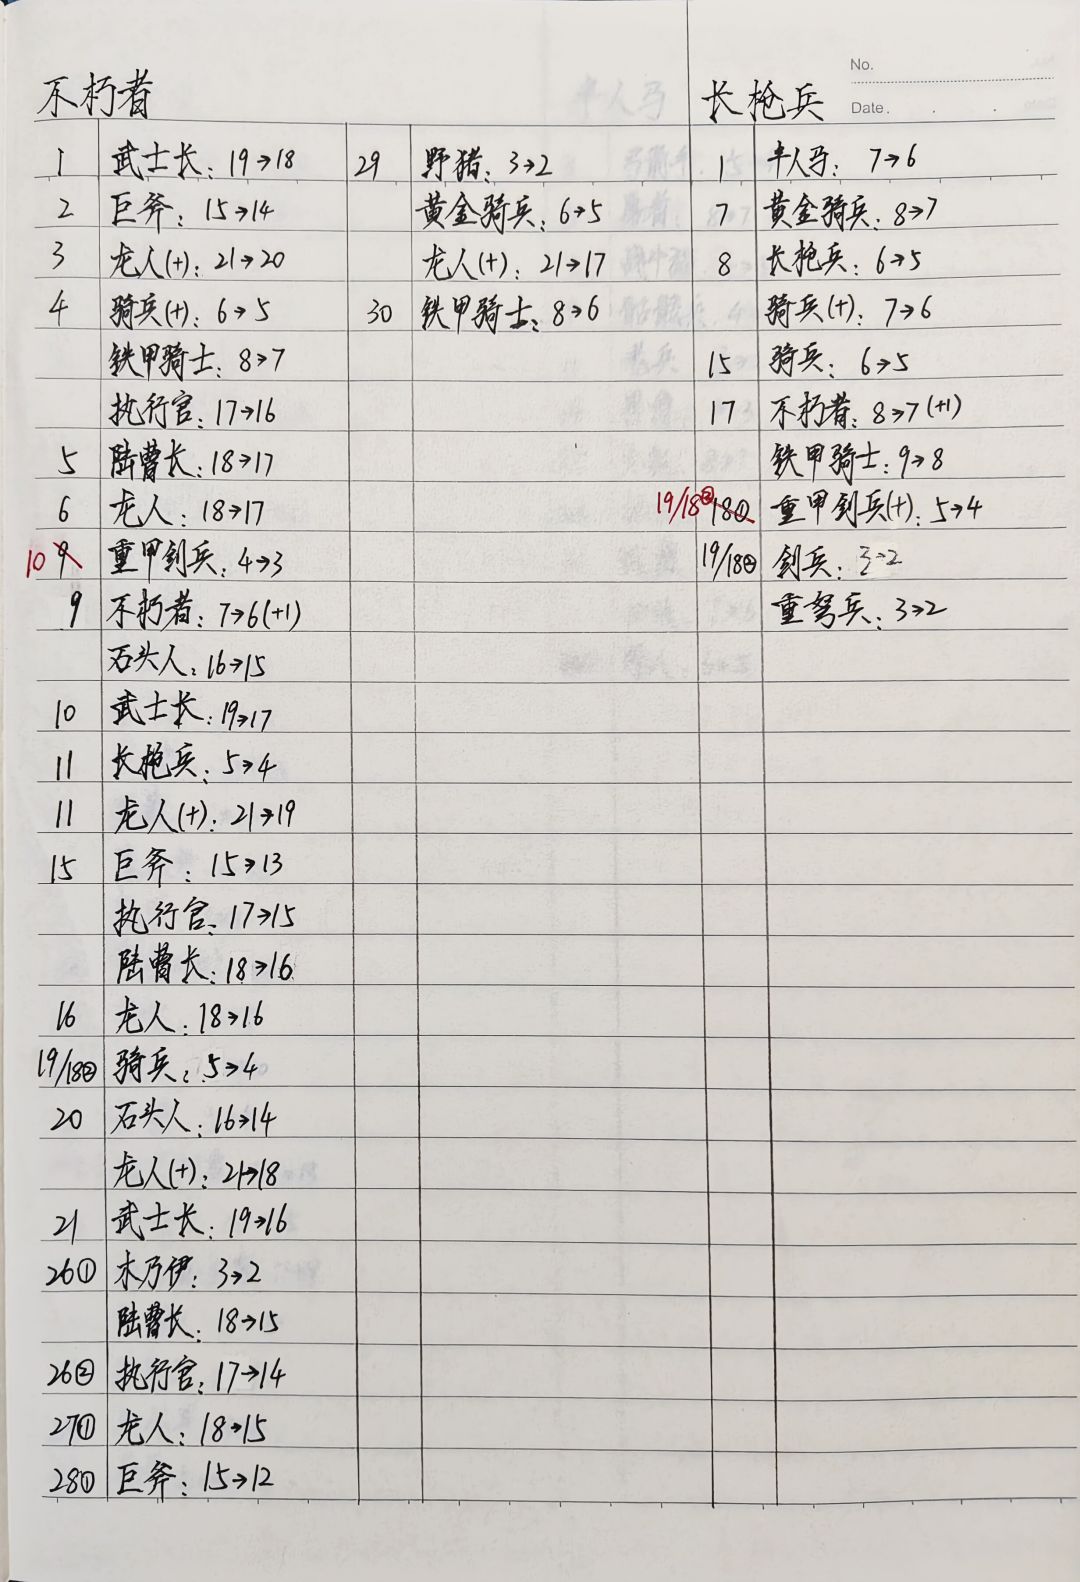 No.
Date.
不朽者
1 武士长：19→18
2 巨斧：15→14
3 龙人(+)：21→20
4 骑兵(+)：6→5
铁甲骑士：8→7
执行官：17→16
5 陆曹长：18→17
6 龙人：18→17
10 9 重甲剑兵：4→3
9 不朽者：7→6(+1)
石头人：16→15
10 武士长：19→17
11 长枪兵：5→4
11 龙人(+)：21→19
15 巨斧：15→13
执行官：17→15
陆曹长：18→16
16 龙人：18→16
19/18② 骑兵：5→4
20 石头人：16→14
龙人(+)：21→18
21 武士长：19→16
26① 木乃伊：3→2
陆曹长：18→15
26② 执行官：17→14
27① 龙人：18→15
28① 巨斧：15→12
29 野猪：3→2
黄金骑兵：6→5
龙人(+)：21→17
30 铁甲骑士：8→6
长枪兵
1 半人马：7→6
7 黄金骑兵：8→7
8 长枪兵：6→5
骑兵(+)：7→6
15 骑兵：6→5
17 不朽者：8→7(+1)
铁甲骑士：9→8
19/18② 18① 重甲剑兵(+)：5→4
19/18② 剑兵：3→2
重弩兵：3→2